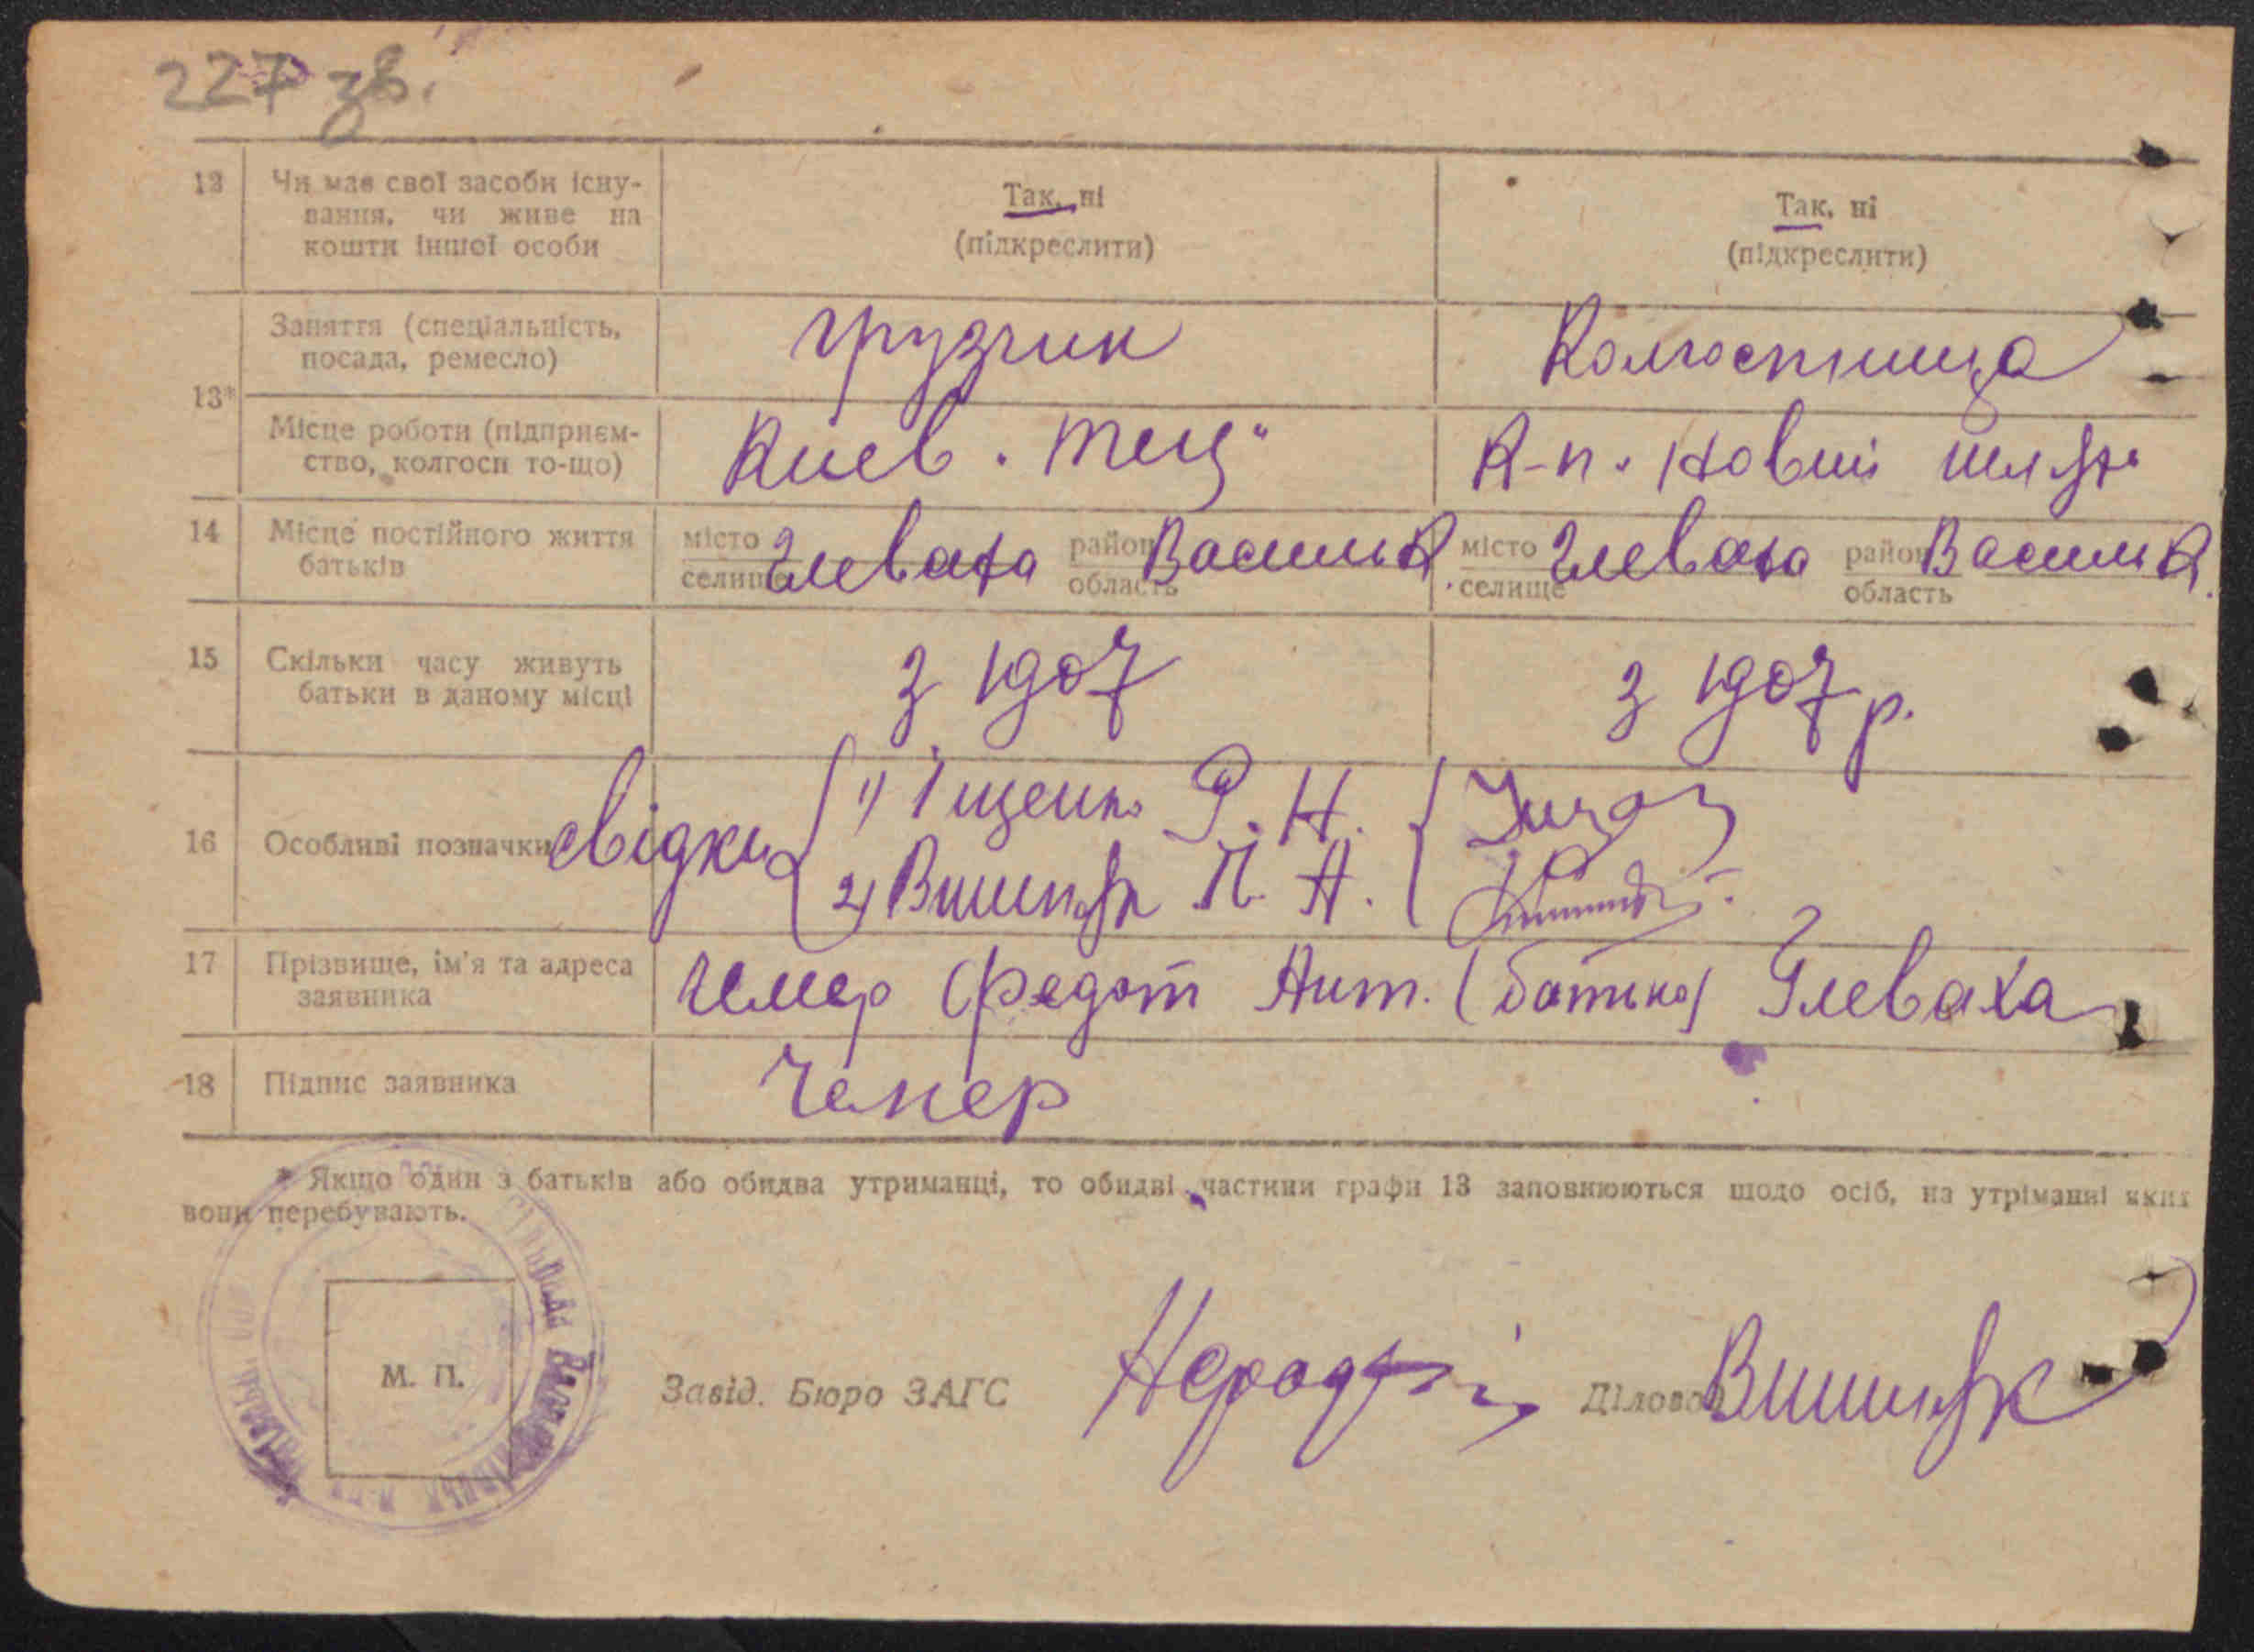 227 зв.
12 Чи має свої засоби існу-
вання, чи живе на
кошти іншої особи
Так, ні
(підкреслити)
Так, ні
(підкреслити)
13*
Заняття (спеціальність,
посада, ремесло)
грузчик
Колгоспниця
Місце роботи (підприєм-
ство, колгосп то-що)
Киев.
К-п. Новий шлях
14 Місце постійного життя
батьків
місто
селище
Глеваха
район
область
Васильк.
місто
селище
Глеваха
район
область
Васильк.
15 Скільки часу живуть
батьки в даному місці
з 1907
з 1907 р.
16 Особливі позначки
свідки
1) Іщенко Р. Н.
2) Вишняк П. А.
17 Прізвище, ім'я та адреса
заявника
Федот Ант. (батько) Глеваха
18 Підпис заявника
* Якщо один з батьків або обидва утриманці, то обидві частини графи 13 заповнюються щодо осіб, на утріманні яких
вони перебувають.
М. П.
Завід. Бюро ЗАГС
Діловод
Вишняк